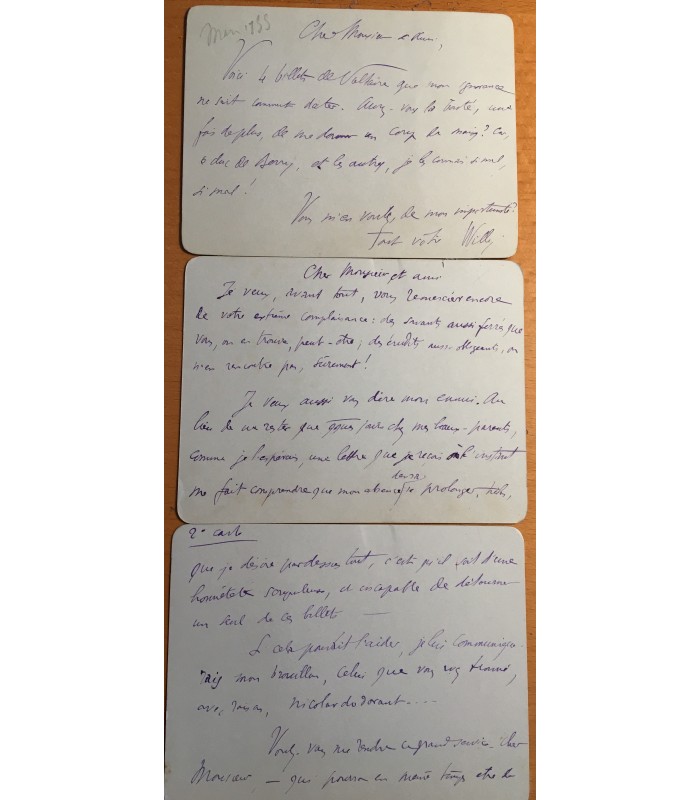 Mars 1933
Cher Monsieur et ami,
Voici 4 billets de Voltaire que mon ignorance
ne sait comment dater. Aurez-vous la bonté, une
fois de plus, de me donner un coup de main? Ce,
duc de Berry, et les autres, je les connais si mal,
si mal!
Vous m'en voulez de mon importunité?
Tout vôtre Willy
Cher Monsieur et ami
Je veux, avant tout, vous remercier encore
de votre extrême complaisance: des savants aussi ferrés que
vous, on en trouve, peut-être; des érudits aussi obligeants, on
n'en rencontre pas, sûrement!
Je veux aussi vous dire mon ennui. Au
lieu de ne rester que qques jours chez mes beaux-parents,
comme je l'espérais, une lettre que je reçois à l'instant
me fait comprendre que mon absence devra se prolonger,
2e carte
que je désire par dessus tout, c'est qu'il soit d'une
honnêteté scrupuleuse, et incapable de détourner
un seul de ces billets —
Si cela pouvait l'aider, je lui communique-
rais mon brouillon, celui que vous avez trouvé,
avec raison,
Voulez-vous me rendre ce grand service, cher
Monsieur — que pourra en même temps